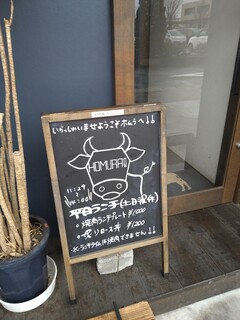 いらっしゃいませようこそホムラへ↓↓
HOMURA
11:29
14:00
平日ランチ(土日祝休)
・焼肉ランチプレート ¥1000
・炙りロース丼 ¥1200
※ランチタイムは焼肉できません